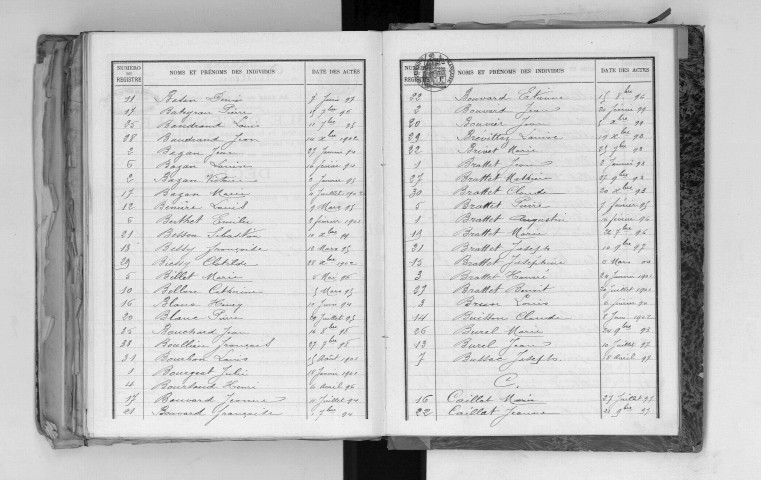 NUMÉRO DE REGISTRE NOMS ET PRÉNOMS DES INDIVIDUS DATE DES ACTES
21 Louis 7 Juin 97
17 Pierre
25 Baudrand Louis
28 Baudrand Jean 10 Xbre 1902
2 Bazan 27 Janvier 94
5 Bazan février 94
2 Bazan Victoire 2 Janvier 95
17 Bazan Marie Juillet 1902
12 Louis 9 Mars 95
5 Berthet Emilie 2 février 1901
21 Besson Sébastien 10 Xbre 94
13 Betty Françoise 10 Mars 95
29 Clotilde 28 Xbre 1902
5 Billet Marie 5 Mai 96
10 Catherine 5 Mars 95
16 Blanc 10 Juin 94
20 Blanc Pierre 20 Juillet 95
25 Bouchard Jean 16 8bre 96
38 Boullier François 27 7bre 96
31 Bourbon Louis 15 Août 1901
1 Bourgeat Julie 18 Janvier 1901
4 Bourland Henri 2 Avril 96
17 Bouvard Jeanne 11 Juillet 94
21 Bouvard Françoise 7bre 94
NUMÉRO DE REGISTRE NOMS ET PRÉNOMS DES INDIVIDUS DATE DES ACTES
22 Bouvard Etienne 15 8bre 94
2 Bouvard Jean 20 février 99
20 Bouvier Jean Xbre 99
29 Louise 19 Xbre 92
22 Brevet Marie 25 7bre 93
1 Brottet Jean 2 Janvier 93
27 Brottet Mathieu 27 9bre 93
30 Brottet Claude 20 Xbre 93
5 Brottet Pierre 7 février 95
5 Brottet Augustin 10 février 96
19 Brottet Marie 22 7bre 96
21 Brottet Joseph 10 9bre 97
15 Brottet Joséphine Mars 00
3 Brottet 20 Janvier 1901
27 Brottet Benoit 20 Juillet 1901
3 Brun Louis 6 février 90
14 Buisson Claude 8 Juin 1902
26 Burel Marie 24 9bre 93
13 Burel Jean 10 Juillet 97
7 Joseph 18 Avril 97
C.
16 Caillat Marie 27 Juillet 97
22 Caillat Jeanne 21 9bre 97